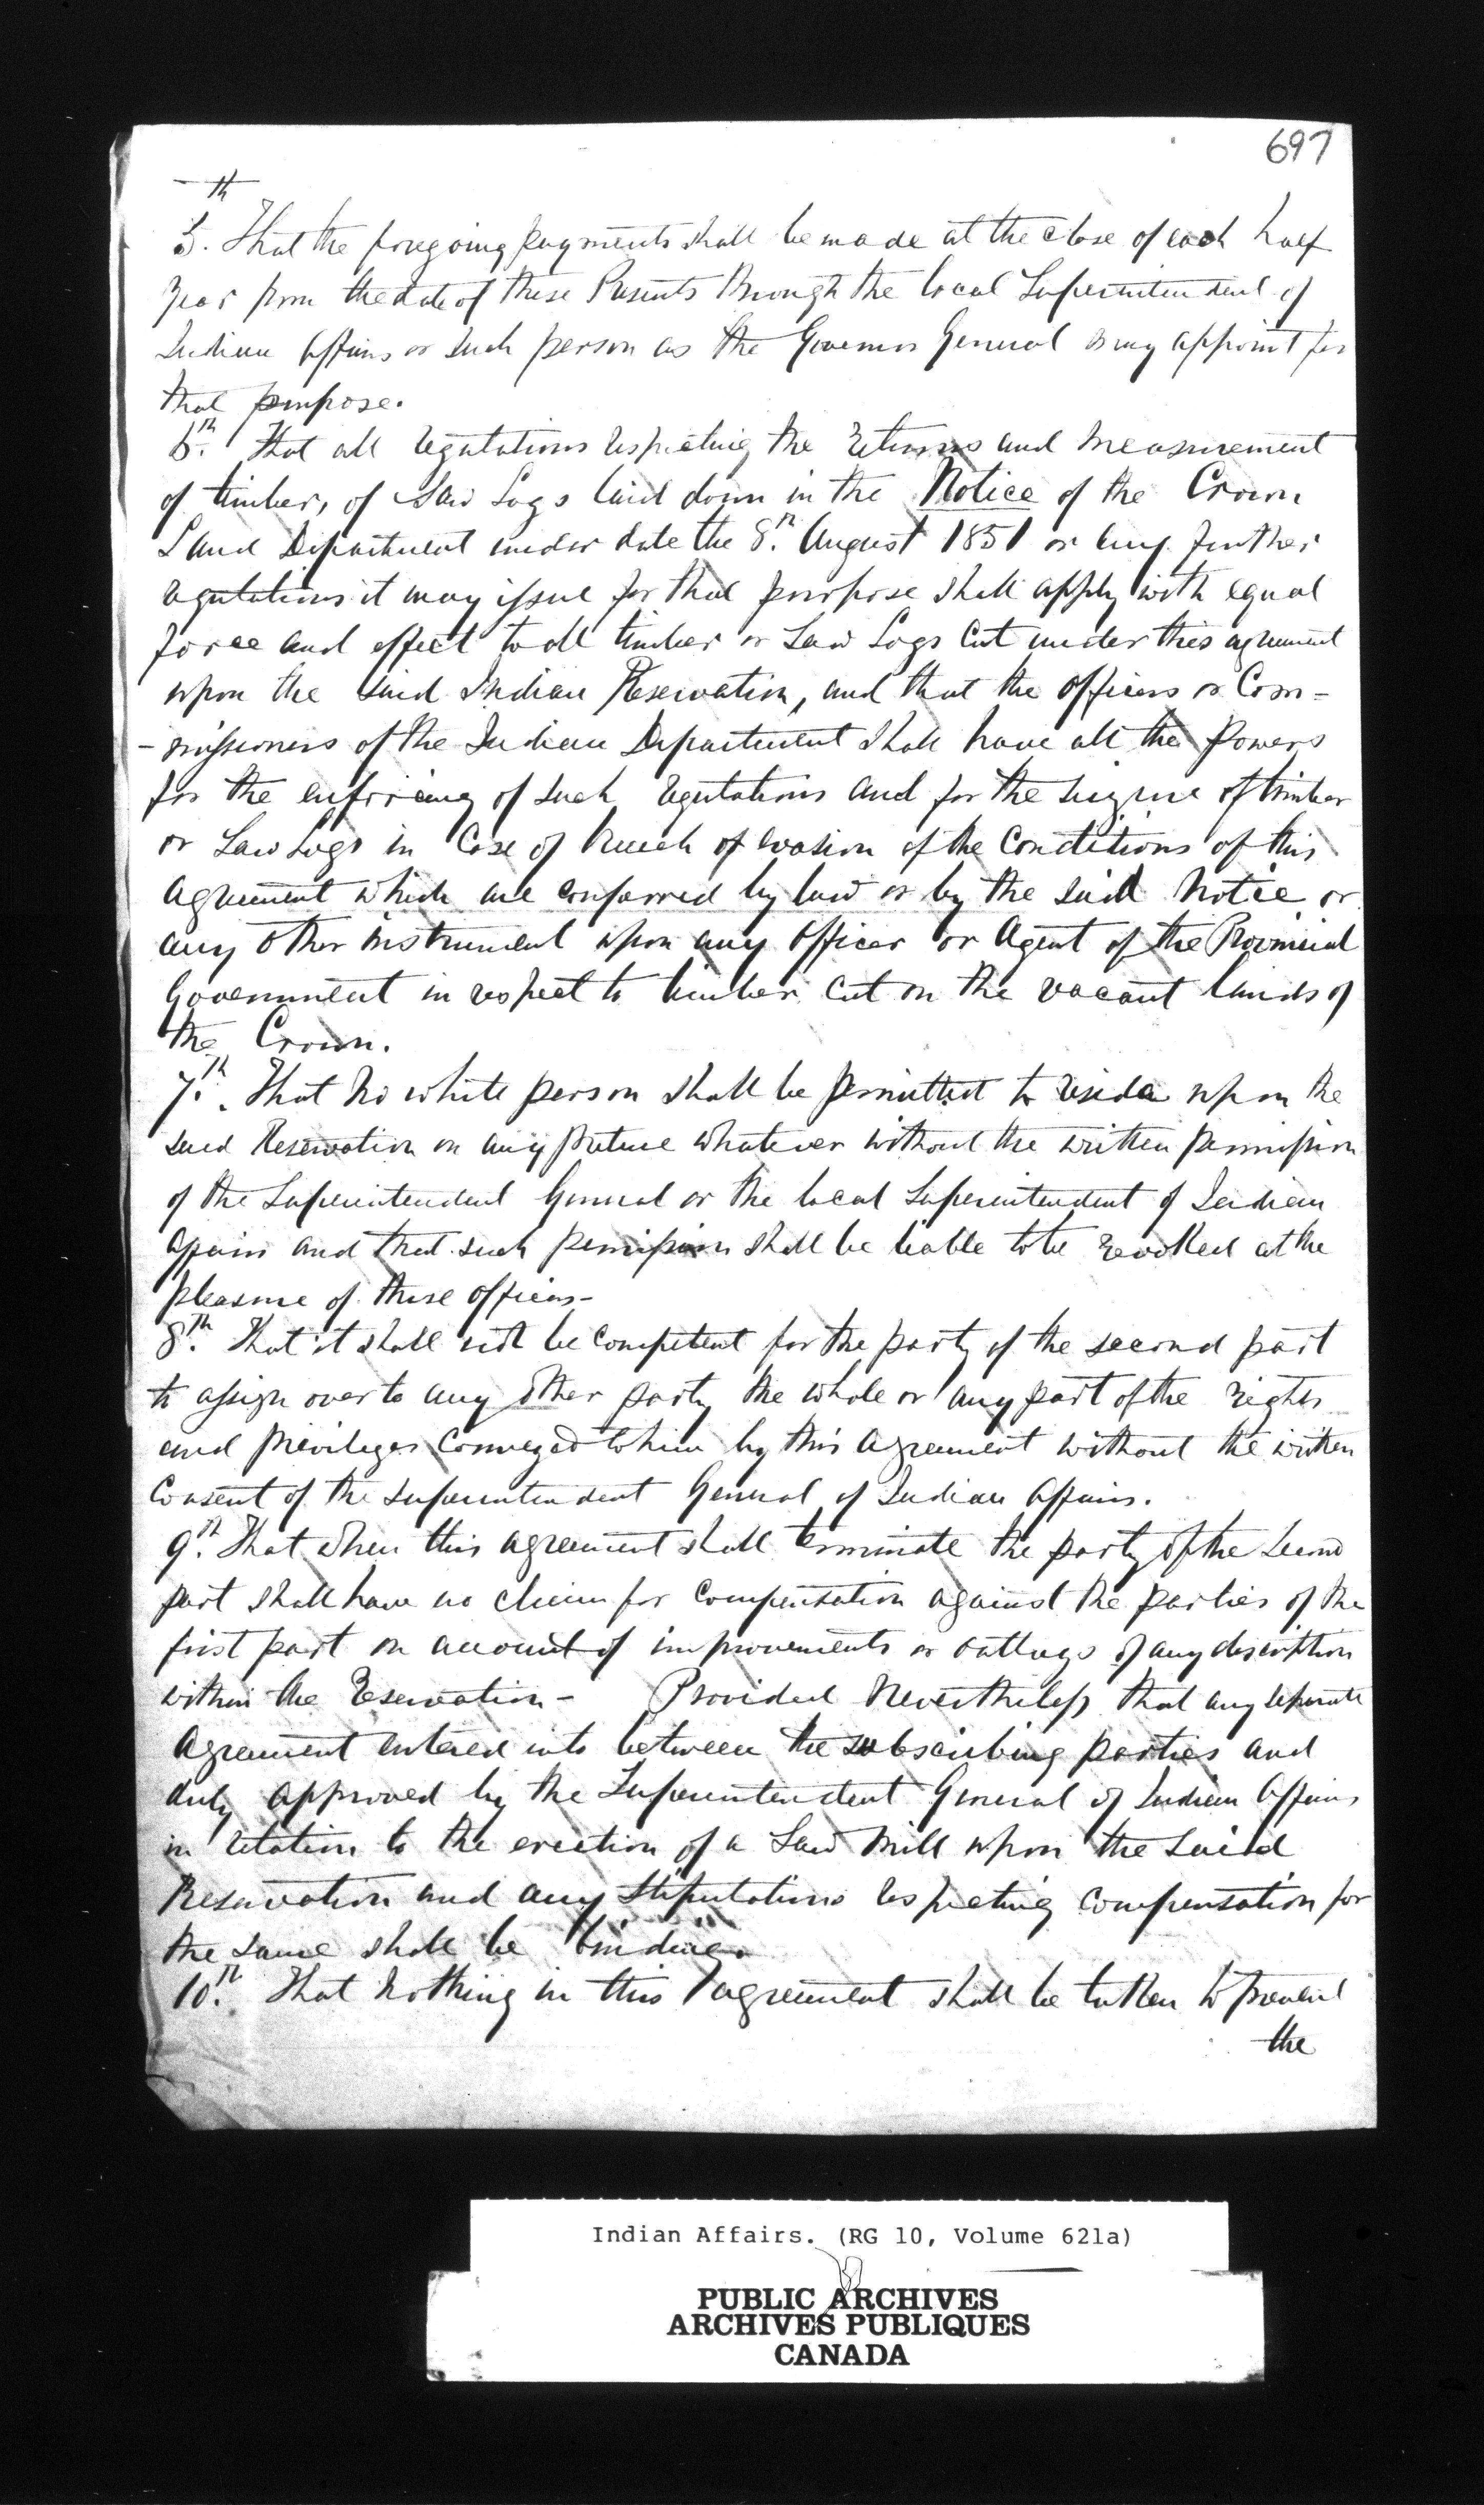 697
5th. That the foregoing payments shall be made at the close of each half
year from the date of these Presents through the local Superintendent of
Indian Affairs or such person as the Governor General may appoint for
that purpose.
6th. That all regulations respecting the returns and measurement
of timber, of Saw Logs laid down in the Notice of the Crown
Land Department under date the 8th. August 1851 or any further
regulations it may issue for that purpose shall apply with equal
force and effect to all timber or Saw Logs cut under this agreement
upon the said Indian Reservation, and that the officers or Com-
-missioners of the Indian Department shall have all the powers
for the enforcing of such regulations and for the seizure of timber
or Saw Logs in Case of breach of evasion of the Conditions of this
agreement which are conferred by law or by the said Notice or
any other instrument upon any Officer or Agent of the Provincial
Government in respect to timber cut on the vacant lands of
the Crown.
7th. That no white person shall be permitted to reside upon the
said Reservation on any pretence whatever without the written permission
of the Superintendent General or the local Superintendent of Indian
Affairs and that such permission shall be liable to be revoked at the
pleasure of those officers-
8th. That it shall not be competent for the party of the second part
to assign over to any other party the whole or any part of the rights
and privileges conveyed to him by this Agreement without the written
Consent of the Superintendent General of Indian Affairs.
9th. That when this agreement shall terminate the party of the Second
part shall have no claim for compensation against the parties of the
first part on account of improvements or outlays of any description
within the Reservation - Provided Nevertheless that any separate
Agreement entered into between the subscribing parties and
duly approved by the Superintendent General of Indian Affairs
in relation to the erection of a Saw Mill upon the said
Reservation and any Stipulations respecting compensation for
the same shall be binding.
10th. That nothing in this agreement shall be taken to prevent
the
Indian Affairs. (RG 10, Volume 621a)
PUBLIC ARCHIVES
ARCHIVES PUBLIQUES
CANADA